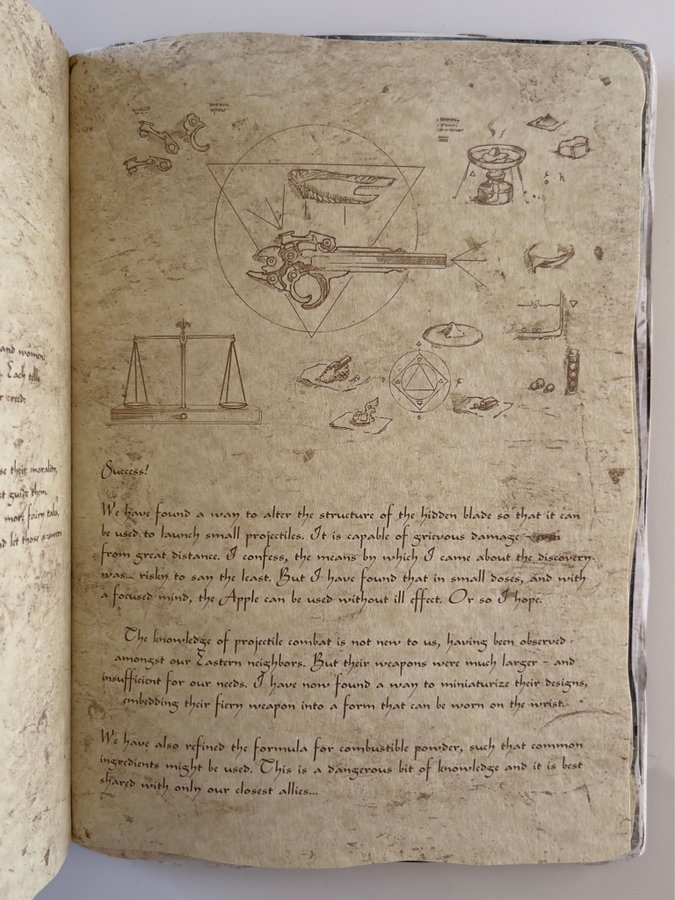 and women
Each tells
creed:
se their morality,
st guide them
more fairy tale,
nd let those answers
Success!
We have found a way to alter the structure of the hidden blade so that it can
be used to launch small projectiles. It is capable of grievous damage - even
from great distance. I confess, the means by which I came about the discovery
was... risky to say the least. But I have found that in small doses, and with
a focused mind, the Apple can be used without ill effect. Or so I hope.
The knowledge of projectile combat is not new to us, having been observed
amongst our Eastern neighbors. But their weapons were much larger - and
insufficient for our needs. I have now found a way to miniaturize their designs,
embedding their fiery weapon into a form that can be worn on the wrist.
We have also refined the formula for combustible powder, such that common
ingredients might be used. This is a dangerous bit of knowledge and it is best
shared with only our closest allies...